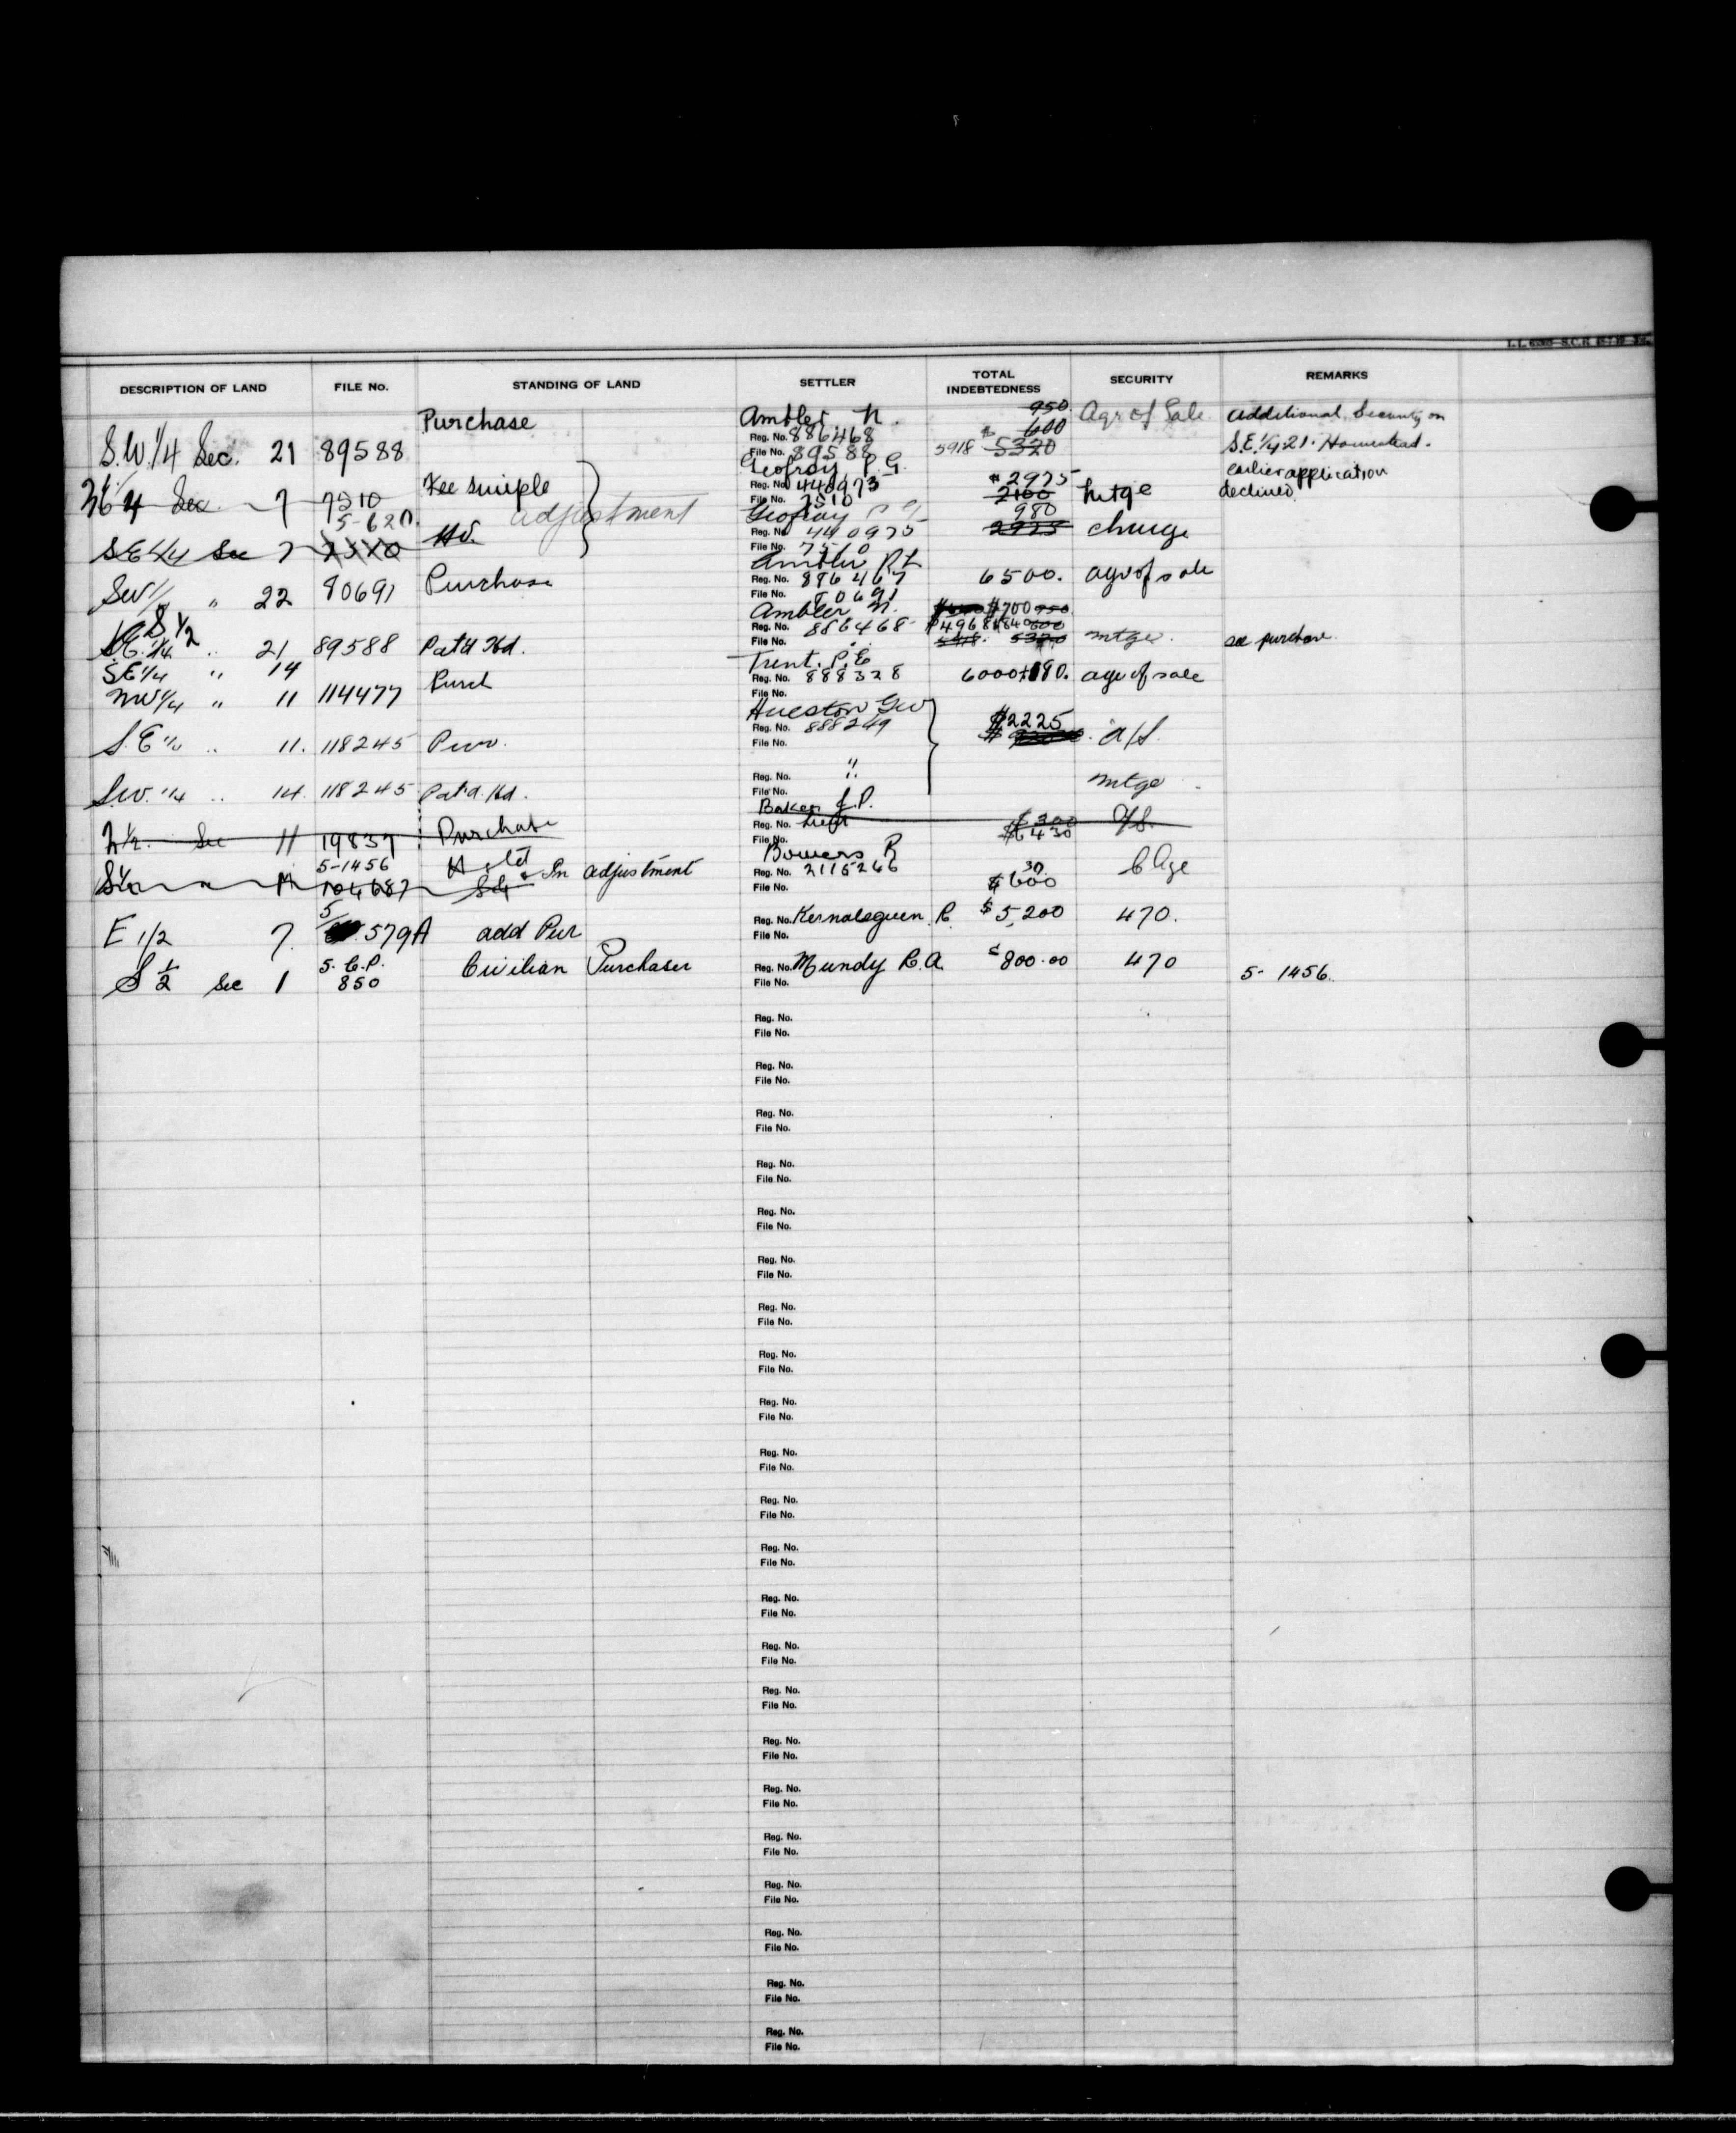 DESCRIPTION OF LAND FILE No. STANDING OF LAND SETTLER TOTAL INDEBTEDNESS SECURITY REMARKS
S.W. 1/4 Sec. 21 89588 Purchase Ambler N. 950 Agr of Sale Additional Security on
Reg. No. 886468 600 S.E. 1/4 21. Homestead.
File No. 89588 5918 5320 earlier application
Geofroy P. G. declined.
1/4 Sec 7 7510 Fee Simple Reg. No. 440975 $2975 2100 Mtge
File No. 7510
5-620 adjustment Geofroy P G 980
S.E. 1/4 Sec 7 7510 Hd. Reg. No. 440975 2975 charge
File No. 7510
SW 1/4 " 22 80691 Purchase Ambler R L
Reg. No. 886467 6500. agr of sale
File No. 80691
S 1/2 Ambler N. $700 950
S.E. 1/4 " 21 89588 Pat'd Hd. Reg. No. 886468 $4968 $840 600 mtge. see purchase
File No. " 5320
S.E 1/4 " 14 Trent. P.E
NW 1/4 " 11 114477 Purch Reg. No. 888328 6000+180. agr of sale
File No.
Hueston Geo
S.E 1/4 " 11. 118245 Pur. Reg. No. 888249 $2225 A/S.
File No.
S.W. 1/4 " 14. 118245 Pat'd. Hd. Reg. No. " mtge
File No. "
Baker J.P.
N 1/2. Sec 11 19837 Purchase Reg. No. Lieut $300 A/S.
File No. $6430
5-1456 Bowers R
S 1/2 " 104687 In adjustment Reg. No. 2115266 30. C Age
File No. $600
E 1/2 7. 5/579A add Pur Reg. No. Kernaleguen R. $5,200 470.
File No.
S 1/2 Sec 1 5. C.P. 850 Civilian Purchaser Reg. No. Mundy R.A. $800.00 470 5-1456.
File No.
Reg. No.
File No.
Reg. No.
File No.
Reg. No.
File No.
Reg. No.
File No.
Reg. No.
File No.
Reg. No.
File No.
Reg. No.
File No.
Reg. No.
File No.
Reg. No.
File No.
Reg. No.
File No.
Reg. No.
File No.
Reg. No.
File No.
Reg. No.
File No.
Reg. No.
File No.
Reg. No.
File No.
Reg. No.
File No.
Reg. No.
File No.
Reg. No.
File No.
Reg. No.
File No.
Reg. No.
File No.
Reg. No.
File No.
Reg. No.
File No.